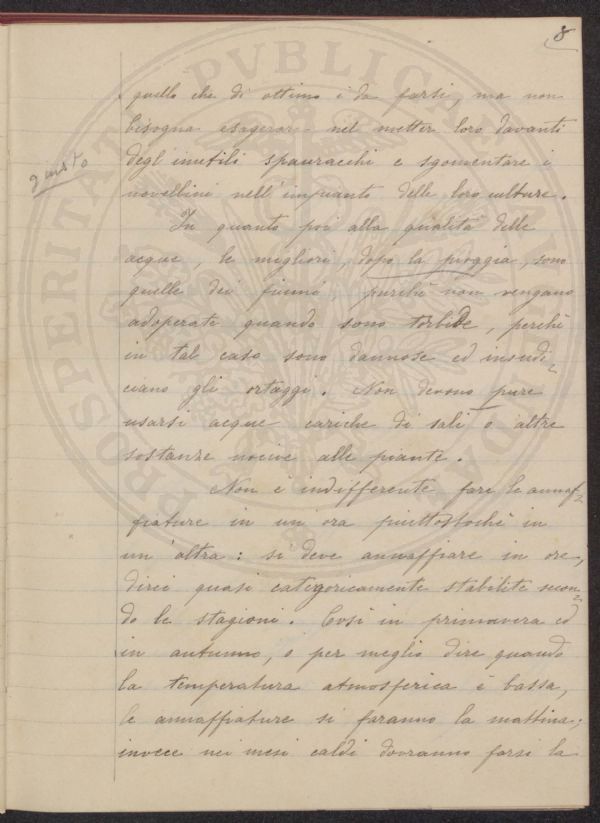 8
quello che di ottimo è da farsi, ma non
bisogna esagerare nel metter loro davanti
degl'inutili spauracchi e sgomentare i
giusto
novellini nell'impianto delle loro culture.
In quanto poi alla qualità delle
acque, le migliori, dopo la pioggia, sono
quelle dei fiumi, purchè non vengano
adoperate quando sono torbide, perchè
in tal caso sono dannose ed insudi-
ciano gli ortaggi. Non devono pure
usarsi acque cariche di sali o altre
sostanze nocive alle piante.
Non è indifferente fare le annaf-
fiature in un'ora piuttostochè in
un'altra: si deve annaffiare in ore,
direi quasi categoricamente stabilite secon-
do le stagioni. Così in primavera ed
in autunno, o per meglio dire quando
la temperatura atmosferica è bassa,
le annaffiature si faranno la mattina;
invece nei mesi caldi dovranno farsi la
PVBLICAE
PROSPERITATI